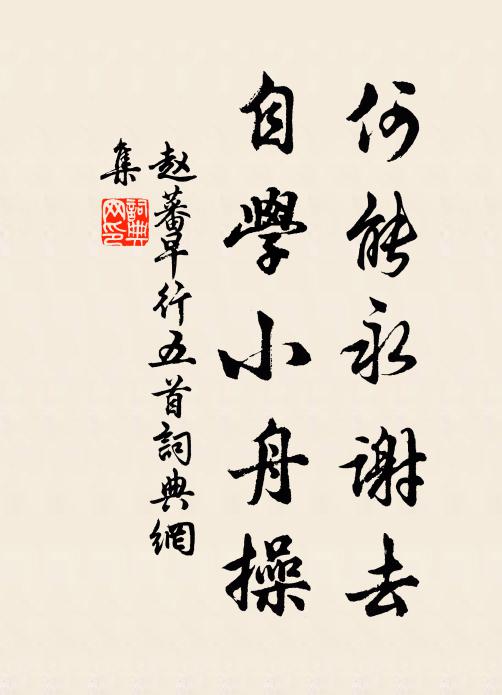 何能永谢去
自學小舟操
赵蕃早行五首詞典網
集
詞典
网印